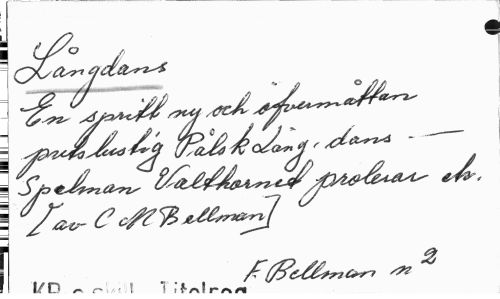 Långdans
En spritt ny och öfvermåttan
putslustig Pålsk Lång-dans —
Spelman Valthornet proberar etc.
[av C M Bellman]
F. Bellman n 2
KB e skill Titelreg